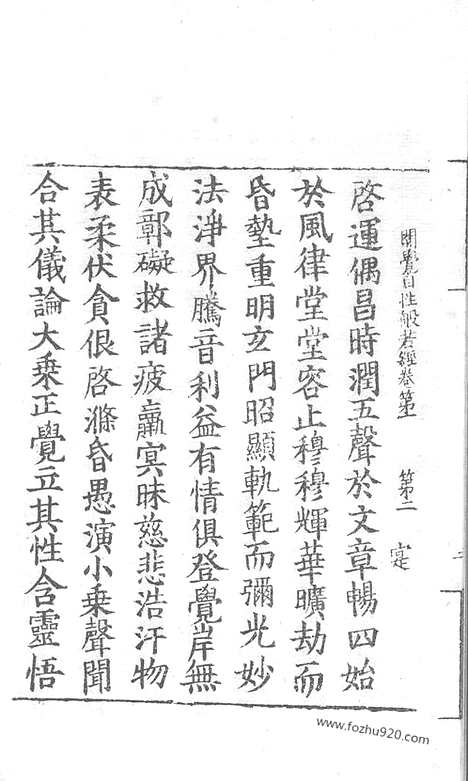 開覺自性般若經卷第一 第二 定
啓運偶昌時潤五聲於文章暢四始
於風律堂堂容止穆穆輝華曠劫而
昏墊重明玄門昭顯軌範而彌光妙
法淨界騰音利益有情俱登覺岸無
成鄣礙救諸疲羸㝠昧慈悲浩汗物
表柔伏貪佷啓滌昏愚演小乗聲聞
合其儀論大乗正覺立其性含靈悟
www.fozhu920.com